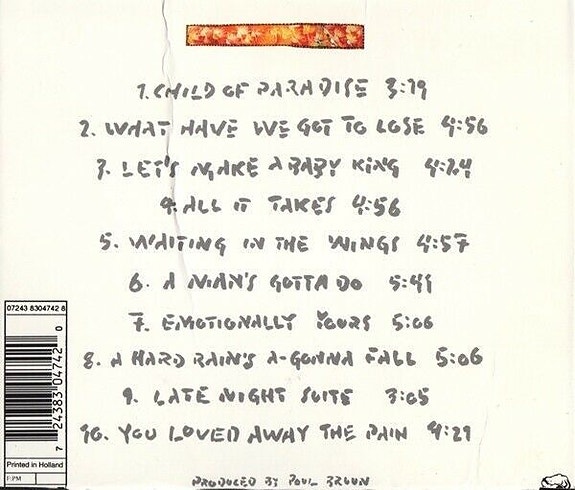 1. CHILD OF PARADISE 3:19
2. WHAT HAVE WE GOT TO LOSE 4:56
3. LET'S MAKE A BABY KING 4:24
4. ALL IT TAKES 4:56
5. WAITING IN THE WINGS 4:57
6. A MAN'S GOTTA DO 5:41
7. EMOTIONALLY YOURS 5:06
8. A HARD RAIN'S A-GONNA FALL 5:06
9. LATE NIGHT SUITE 3:05
10. YOU LOVED AWAY THE PAIN 4:29
07243 8304742 8
7 24383 04742 0
Printed in Holland
PRODUCED BY PAUL BROWN